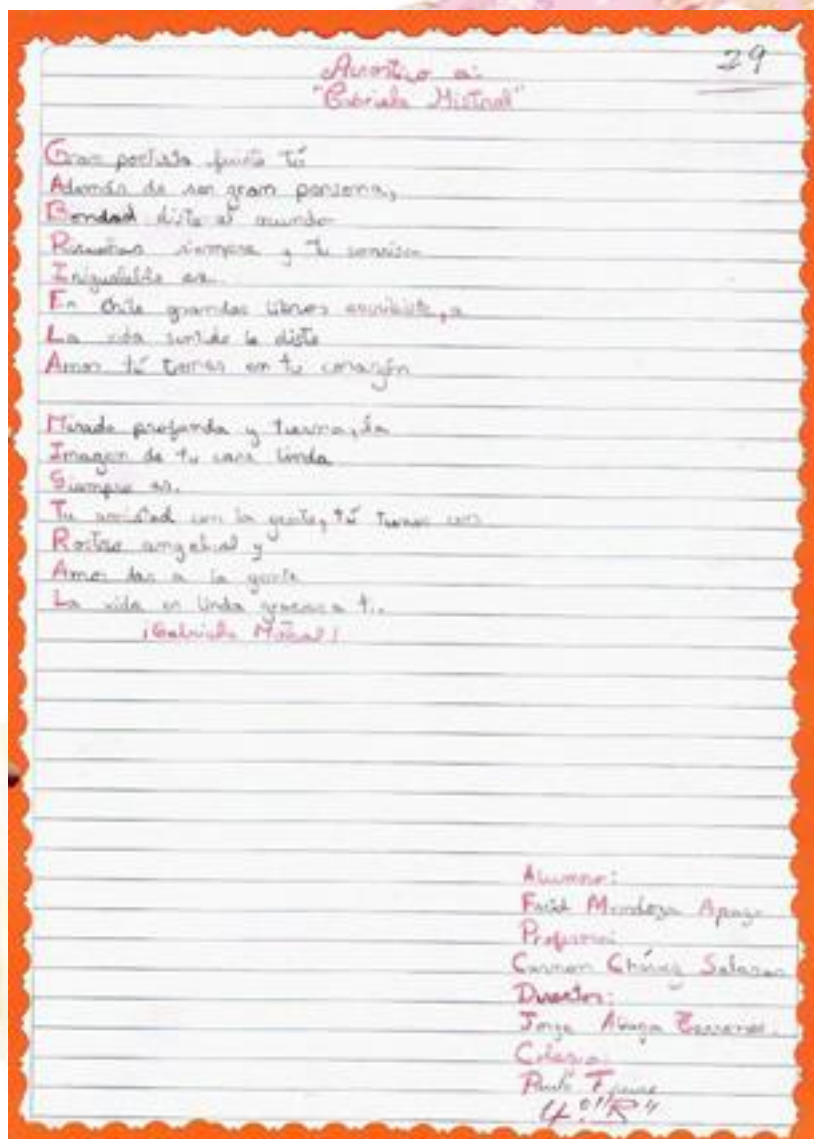 29
Acróstico a:
"Gabriela Mistral"
Gran poetisa fuiste tú
Además de ser gran persona,
Bondad diste al mundo
Risueñas siempre y tu sonrisa
Inigualable es.
En Chile grandes libros escribiste, a
La vida sentido le diste
Amor tú tenías en tu corazón
Mirada profunda y tierna, la
Imagen de tu cara linda
Siempre es.
Tu amistad con la gente, tú tienes un
Rostro angelical y
Amor das a la gente
La vida es linda gracias a ti.
¡Gabriela Mistral!
Alumno:
Farid Mendoza Apaza
Profesora:
Carmen Chávez Salazar
Director:
Jorge
Colegio:
Paulo Freire
4° "R"